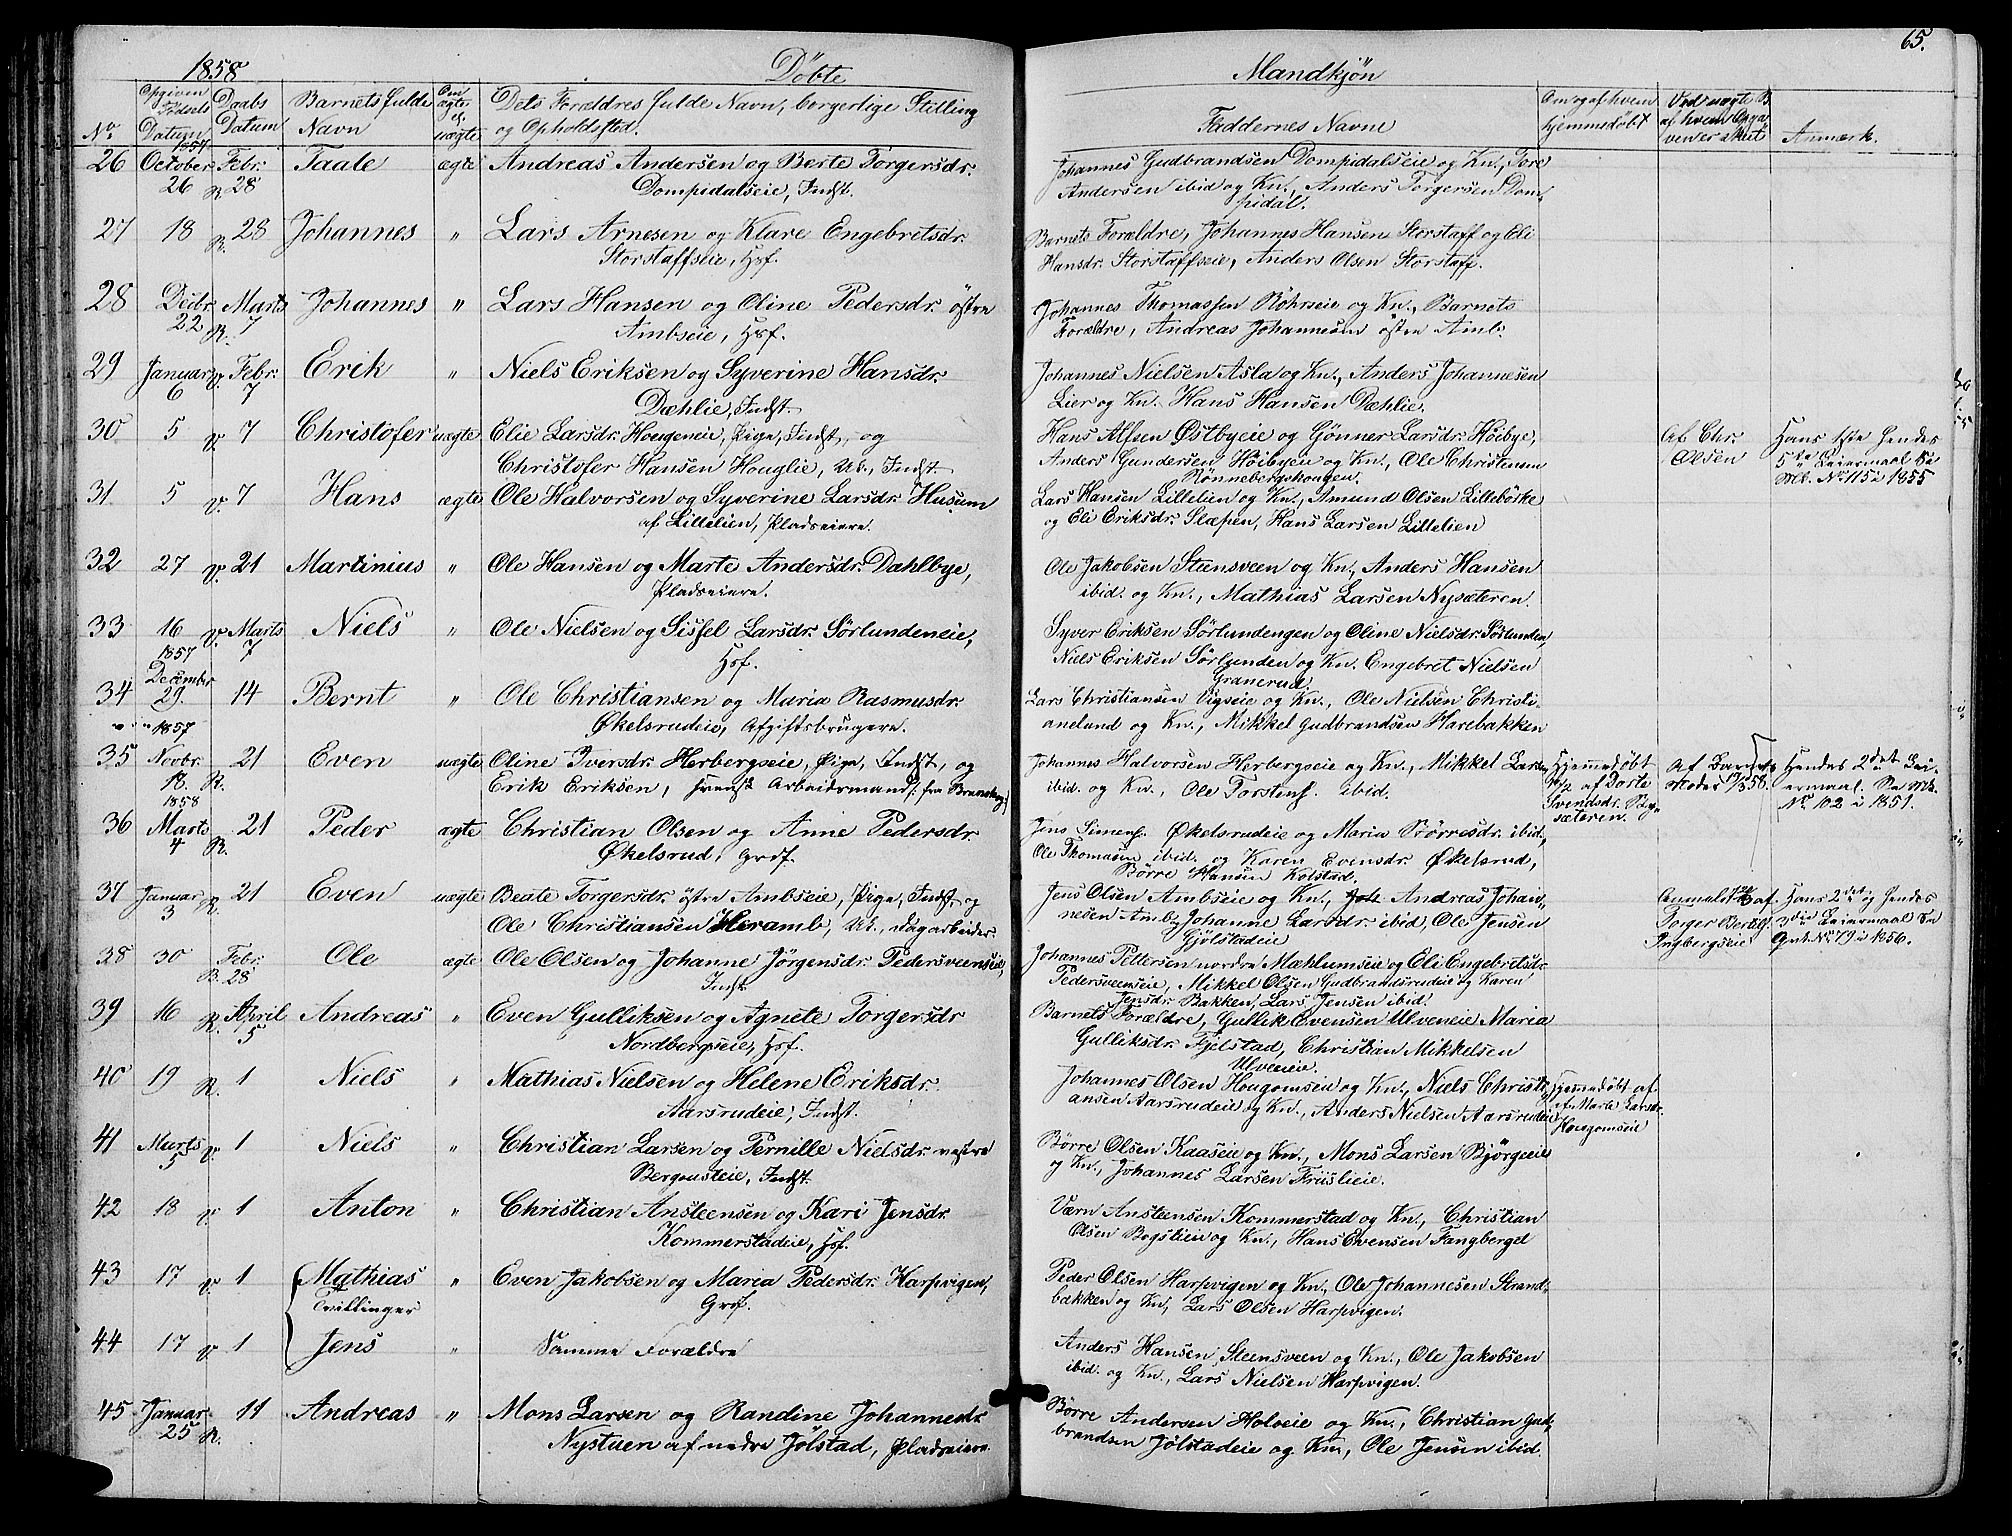 1858 Döbte Mandkjön 65.
No. Opgiven Fødsels Datum Daabs Datum Barnets fulde Navn Om ægte el. uægte Dets Forældres fulde Navn, borgerlige Stilling og Opholdssted. Faddernes Navne Om og af hvem hjemmedöbt Ved uægte B. af hvem Opgiven er skeet Anmærk.
26 1857 October 26 R. Febr. 28 Taale ægte Andreas Andersen og Berte Torgersdr.
Dompidalseie, Indst.
Johannes Gudbrandsen Dompidalseie og Kn., Tore
Andersen ibid og Kn., Anders Torgersen Dom-
pidal.
27 18 R. 28 Johannes " Lars Arnesen og Klare Engebretsdr.
Storstaffseie, Hsf.
Barnets Forældre, Johannes Hansen Storstaff og Eli
Hansdr. Storstaffseie, Anders Olsen Storstaff.
28 Decbr. 22 R. Marts 7 Johannes " Lars Hansen og Oline Pedersdr. östre
Ambseie, Hsf.
Johannes Thomassen Röhrseie og Kn., Barnets
Forældre, Andreas Johannesen östre Amb.
29 Januar 6 V. Febr. 7 Erik " Niels Eriksen og Syverine Hansdr.
Dæhlie, Indst.
Johannes Nielsen Asla og Kn., Anders Johannesen
Lier og Kn. Hans Hansen Dæhlie.
30 5 V. 7 Christofer uægte Elie Larsdr. Hougeneie, Pige, Indst., og
Christofer Hansen Houglie, Uk., Indst.
Hans Alfsen Østbyeie og Gönner Larsdr. Höibye,
Anders Gundersen Höibyen og Kn., Ole Christensen
Rönnebergskougen.
Af Chr.
Olsen
Hans 1ste Hendes
5te Leiermaal Se
Mk. No. 115 i 1855
31 5 V. 7 Hans ægte Ole Halvorsen og Syverine Larsdr. Husum
af Lillelien, Pladseiere.
Lars Hansen Lillelien og Kn., Amund Olsen Lilleböske
og Eli Eriksdr. Slæpen, Hans Larsen Lillelien
32 27 V. 21 Martinius " Ole Hansen og Marte Andersdr. Dahlbye,
Pladseiere.
Ole Jakobsen Steensveen og Kn., Anders Hansen
ibid. og Kn., Mathias Larsen Nysæteren.
33 16 V. Marts 7 Niels " Ole Nielsen og Sissel Larsdr. Sörlundeneie,
Hsf.
Syver Eriksen Sörlundengen og Oline Nielsdr. Sörlunden,
Niels Eriksen Sörlunden og Kn. Engebret Nielsen
Granerud.
34 1857 December 29. 14 Bernt " Ole Christiansen og Maria Rasmusdr.
Økelsrudeie, Afgiftsbrugere.
Lars Christiansen Vigseie og Kn., Ole Nielsen Christi-
aneland og Kn., Mikkel Gudbrandsen Harebakken
35 1857 Novbr. 18. R. 21 Even uægte Oline Iversdr. Herbergseie, Pige, Indst., og
Erik Eriksen, svensk Arbeidsmand, fra
Johannes Halvorsen Herbergseie og Kn., Mikkel Larsen
ibid. og Kn., Ole Torstens. ibid.
Hjemmedöbt
af Dorte
Svendsdr. Byg-
sæteren.
Af Barnets
Moder 17/3 58.
Hendes 2det Lei-
ermaal. Se Mk.
No. 102 i 1851.
36 1858 Marts 4 R. 21 Peder ægte Christian Olsen og Anne Pedersdr.
Økelsrud, Grdf.
Jens Simens. Økelsrudeie og Maria Börresdr. ibid.,
Ole Thomasen ibid. og Karen Evensdr. Økelsrud,
Börre Hansen Kolstad.
37 Januar 3 R. 21 Even uægte Beate Torgersdr. östre Ambseie, Pige, Indst. og
Ole Christiansen Heramb, Uk., Dagarbeider.
Jens Olsen Ambseie og Kn., Andreas Johan-
nesen Amb, Johanne Larsdr. ibid, Ole Jensen
Gjölstadeie
Anmeldt af
Torger Bertels.
Ingbergseie
Hans 2det og Hendes
3die Leiermaal Se
No. 79 i 1856.
38 30 R. Febr. 28 Ole ægte Ole Olsen og Johanne Jörgensdr. Pedersveenseie,
Indst.
Johannes Pettersen nordre Mæhlumseie og Eli Engebretsdr.
Pedersveenseie, Mikkel Olsen Gudbrandsrudeie og Karen
Jensdr. Bakken, Lars Jensen ibid.
39 16 R. April 5 Andreas " Even Gulliksen og Agnete Torgersdr
Nordbergseie, Hsf.
Barnets Forældre, Gullik Evensen Ulveneie Maria
Gulliksdr. Fjelstad, Christian Mikkelsen
Ulveneie.
40 19 R. 1 Niels " Mathias Nielsen og Helene Eriksdr.
Aarsrudeie, Indst.
Johannes Olsen Hougomseie og Kn., Niels Christi-
ansen Aarsrudeie og Kn., Anders Nielsen Aarsrudeie
Hjemmedöbt af
Marte Larsdr.
Hougomseie
41 Marts 5 V. 1 Niels " Christian Larsen og Pernille Nielsdr. vestre
Bergousteie, Indst.
Börre Olsen Kaaseie og Kn., Mons Larsen Bjørgeeie
og Kn., Johannes Larsen Friislieie.
42 18 V. 1 Anton " Christian Ansteensen og Kari Jensdr.
Kommerstadeie, Hsf.
Værn Ansteensen Kommerstad og Kn., Christian
Olsen Bogstieie og Kn., Hans Evensen Fangberget
43 17 V. 1 Mathias " Even Jakobsen og Maria Pedersdr. Harpvigen,
Tvillinger
Grdf.
Peder Olsen Harpvigen og Kn., Ole Johannesen Strand-
bækken og Kn, Lars Olsen Harpvigen.
44 17 V. 1 Jens " Samme Forældre
Anders Hansen Steensveen og Kn., Ole Jakobsen
ibid. og Kn., Lars Nielsen Harpvigen.
45 Januar 25 R. 11 Andreas " Mons Larsen og Randine Johannesdr.
Nystuen af nedre Jölstad, Pladseiere.
Börre Andersen Holveie og Kn., Christian Gud-
brandsen Jölstadeie og Kn., Ole Jensen ibid.